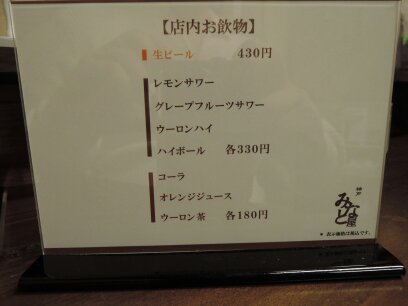 【店内お飲物】
生ビール 430円
レモンサワー
グレープフルーツサワー
ウーロンハイ
ハイボール 各330円
コーラ
オレンジジュース
ウーロン茶 各180円
神戸
みなと屋
※ 表示価格は税込です。